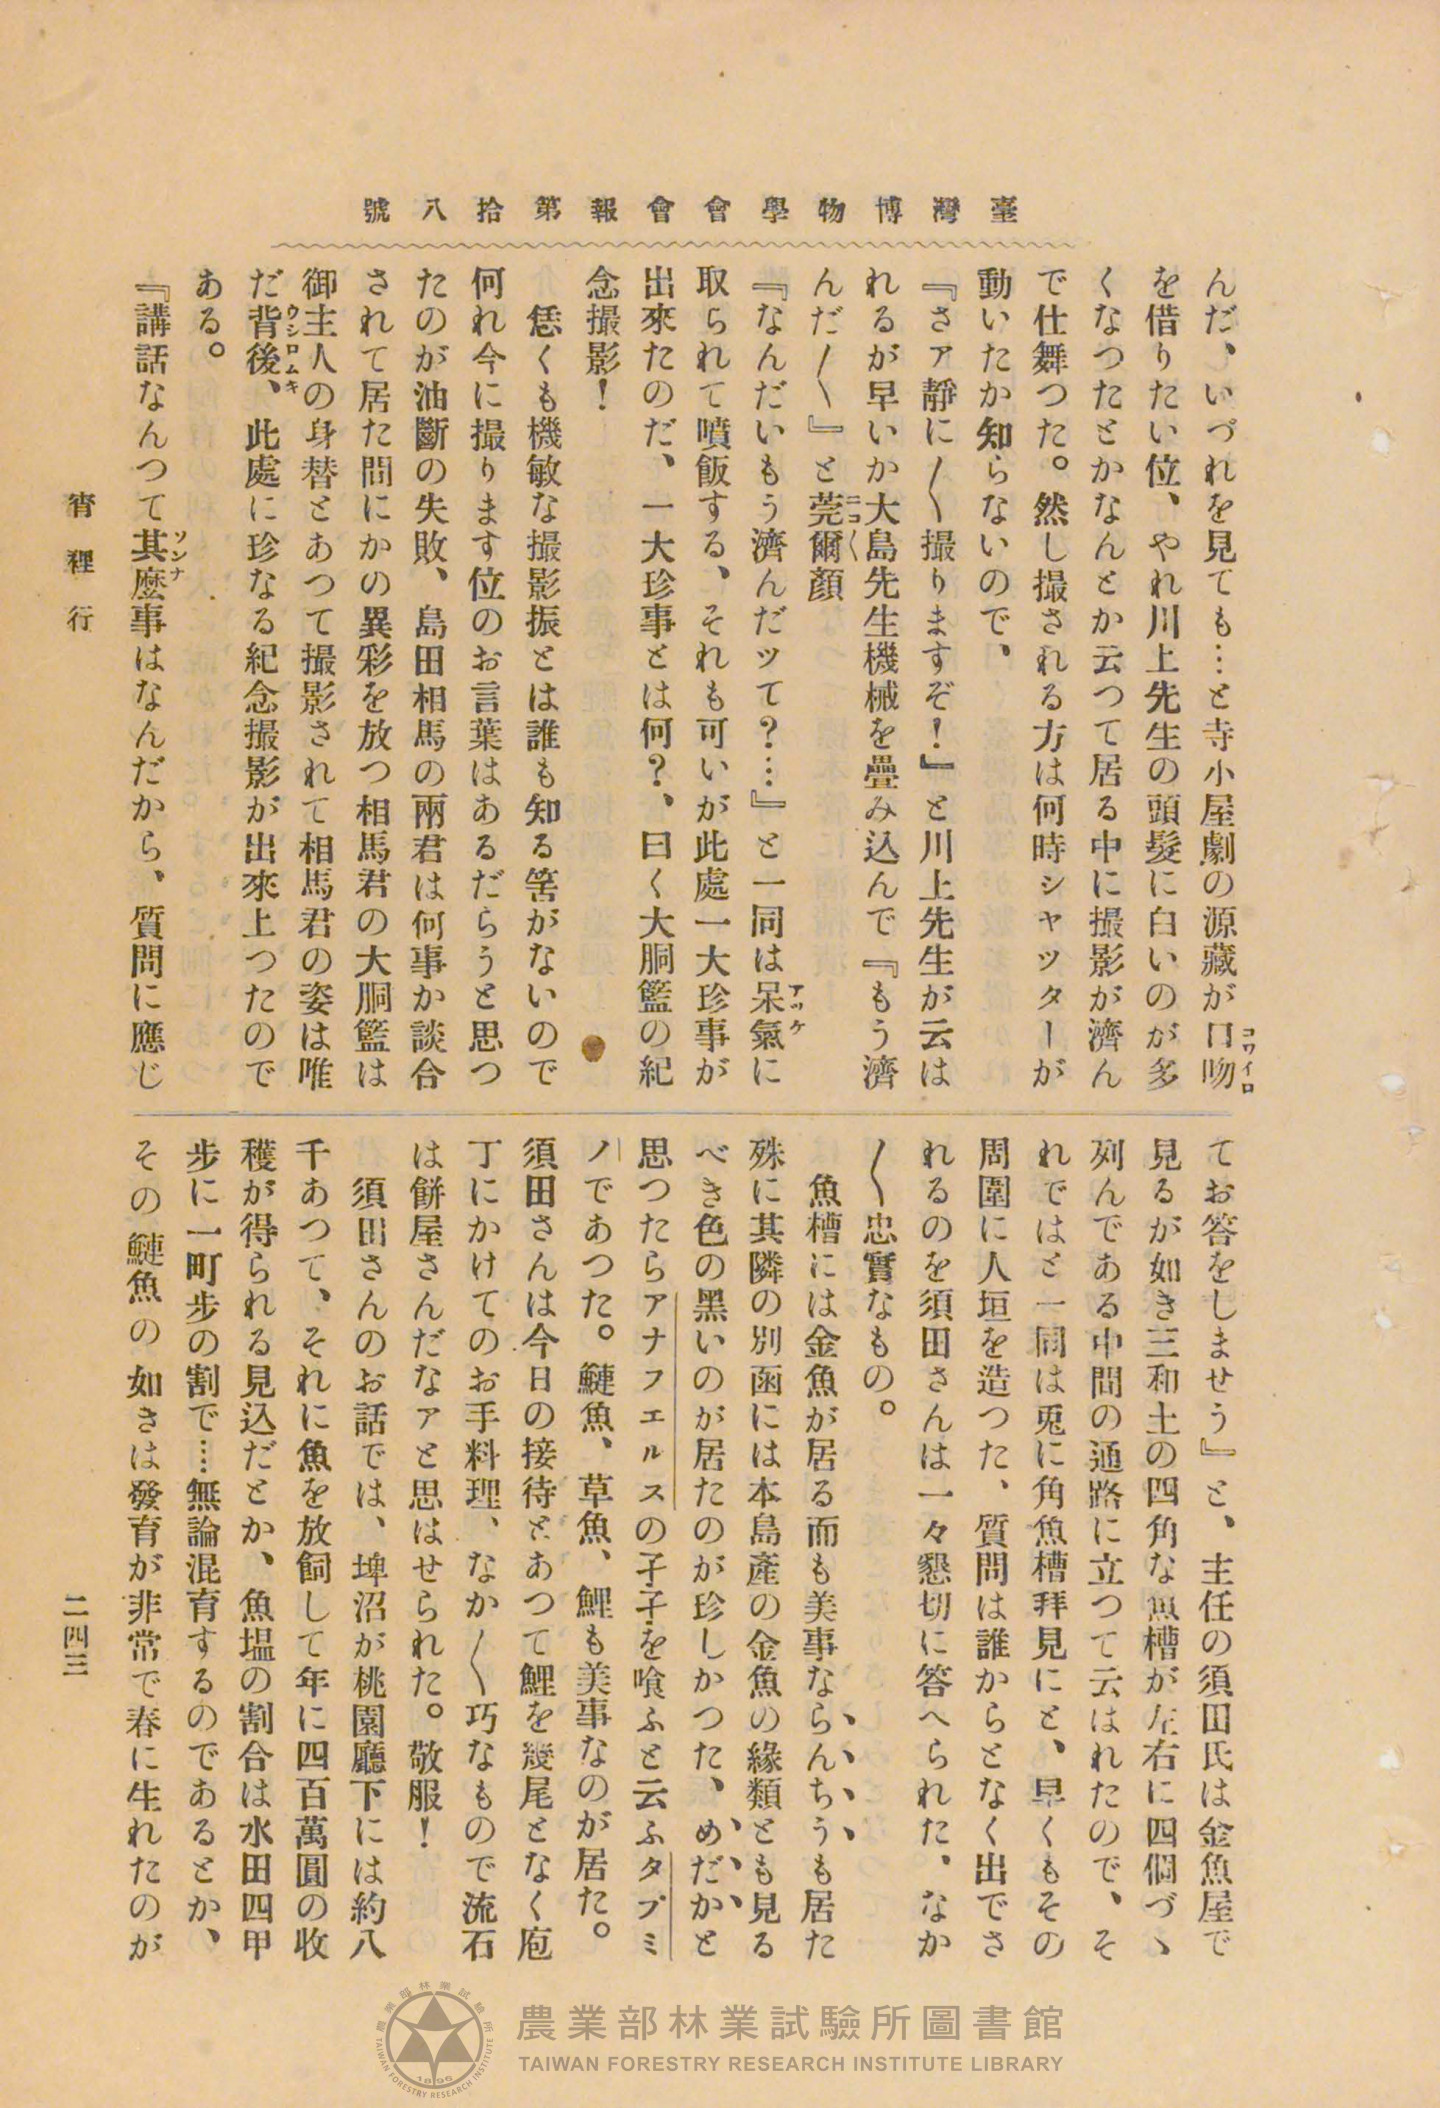 臺灣博物學會會報第拾八號
んだ、いづれを見ても…と寺小屋劇の源藏が口吻コワイロ
を借りたい位、やれ川上先生の頭髮に白いのが多
くなつたとかなんとか云つて居る中に撮影が濟ん
で仕舞つた。然し撮される方は何時シャッターが
動いたか知らないので、
『さァ靜に〳〵撮りますぞ！』と川上先生が云は
れるが早いか大島先生機械を疊み込んで『もう濟
んだ〳〵』と莞爾ニコ〳〵顏
『なんだいもう濟んだッて？…』と一同は呆氣アッケに
取られて噴飯する、それも可いが此處一大珍事が
出來たのだ、一大珍事とは何？、曰く大胴籃の紀
念撮影！
恁くも機敏な撮影振とは誰も知る筈がないので
何れ今に撮ります位のお言葉はあるだらうと思つ
たのが油斷の失敗、島田相馬の兩君は何事か談合
されて居た間にかの異彩を放つ相馬君の大胴籃は
御主人の身替とあつて撮影されて相馬君の姿は唯
だ背後ウシロムキ、此處に珍なる紀念撮影が出來上つたので
ある。
『講話なんつて其麼ソンナ事はなんだから、質問に應じ
てお答をしませう』と、主任の須田氏は金魚屋で
見るが如き三和土の四角な魚槽が左右に四個づゝ
列んである中間の通路に立つて云はれたので、そ
れではと一同は兎に角魚槽拜見にと、早くもその
周圍に人垣を造つた、質問は誰からとなく出でさ
れるのを須田さんは一々懇切に答へられた、なか
〳〵忠實なもの。
魚槽には金魚が居る而も美事ならんちうも居た
殊に其隣の別函には本島產の金魚の緣類とも見る
べき色の黑いのが居たのが珍しかつた、めだかと
思つたらアナフェルスの孑孑を喰ふと云ふタプミ
ノであつた。鰱魚、草魚、鯉も美事なのが居た。
須田さんは今日の接待とあつて鯉を幾尾となく庖
丁にかけてのお手料理、なか〳〵巧なもので流石
は餅屋さんだなァと思はせられた。敬服！
須田さんのお話では、埤沼が桃園廳下には約八
千あつて、それに魚を放飼して年に四百萬圓の收
穫が得られる見込だとか、魚塭の割合は水田四甲
步に一町步の割で‥‥無論混育するのであるとか、
その鰱魚の如きは發育が非常で春に生れたのが
裡行
二四三
農業部林業試驗所圖書館
TAIWAN FORESTRY RESEARCH INSTITUTE LIBRARY
農業部林業試驗所
TAIWAN FORESTRY RESEARCH INSTITUTE
1896